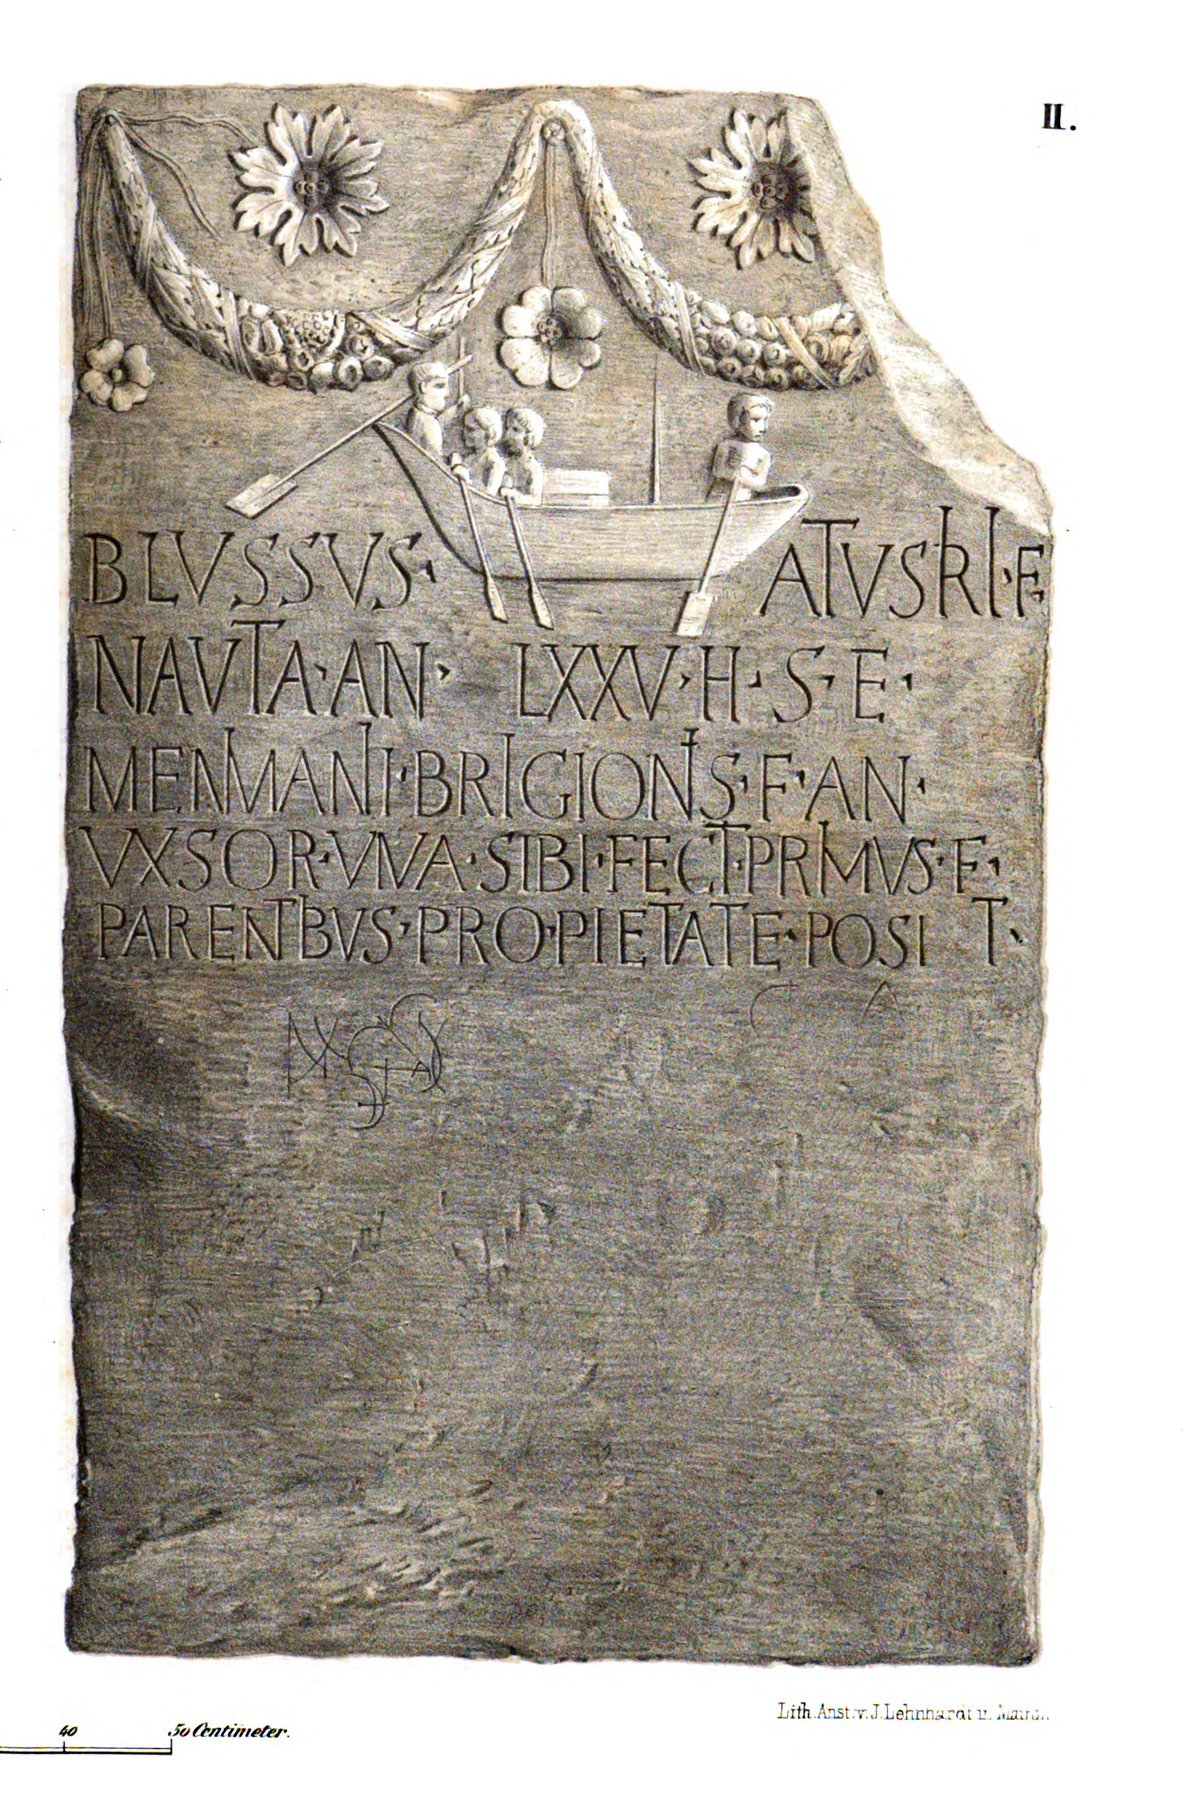 II.
BLVSSVS· ATVSIRI·F·
NAVTA·AN· LXXV·H·S·E·
MENIMANI·BRIGIONIS·F·AN·
VXSOR·VIVA·SIBI·FECIT·PRIMVS·F·
PARENTIBVS·PRO·PIETATE·POSIT·
C A
40 50 Centimeter.
Lith. Anst. v. J. Lehnhardt u. Mainz.